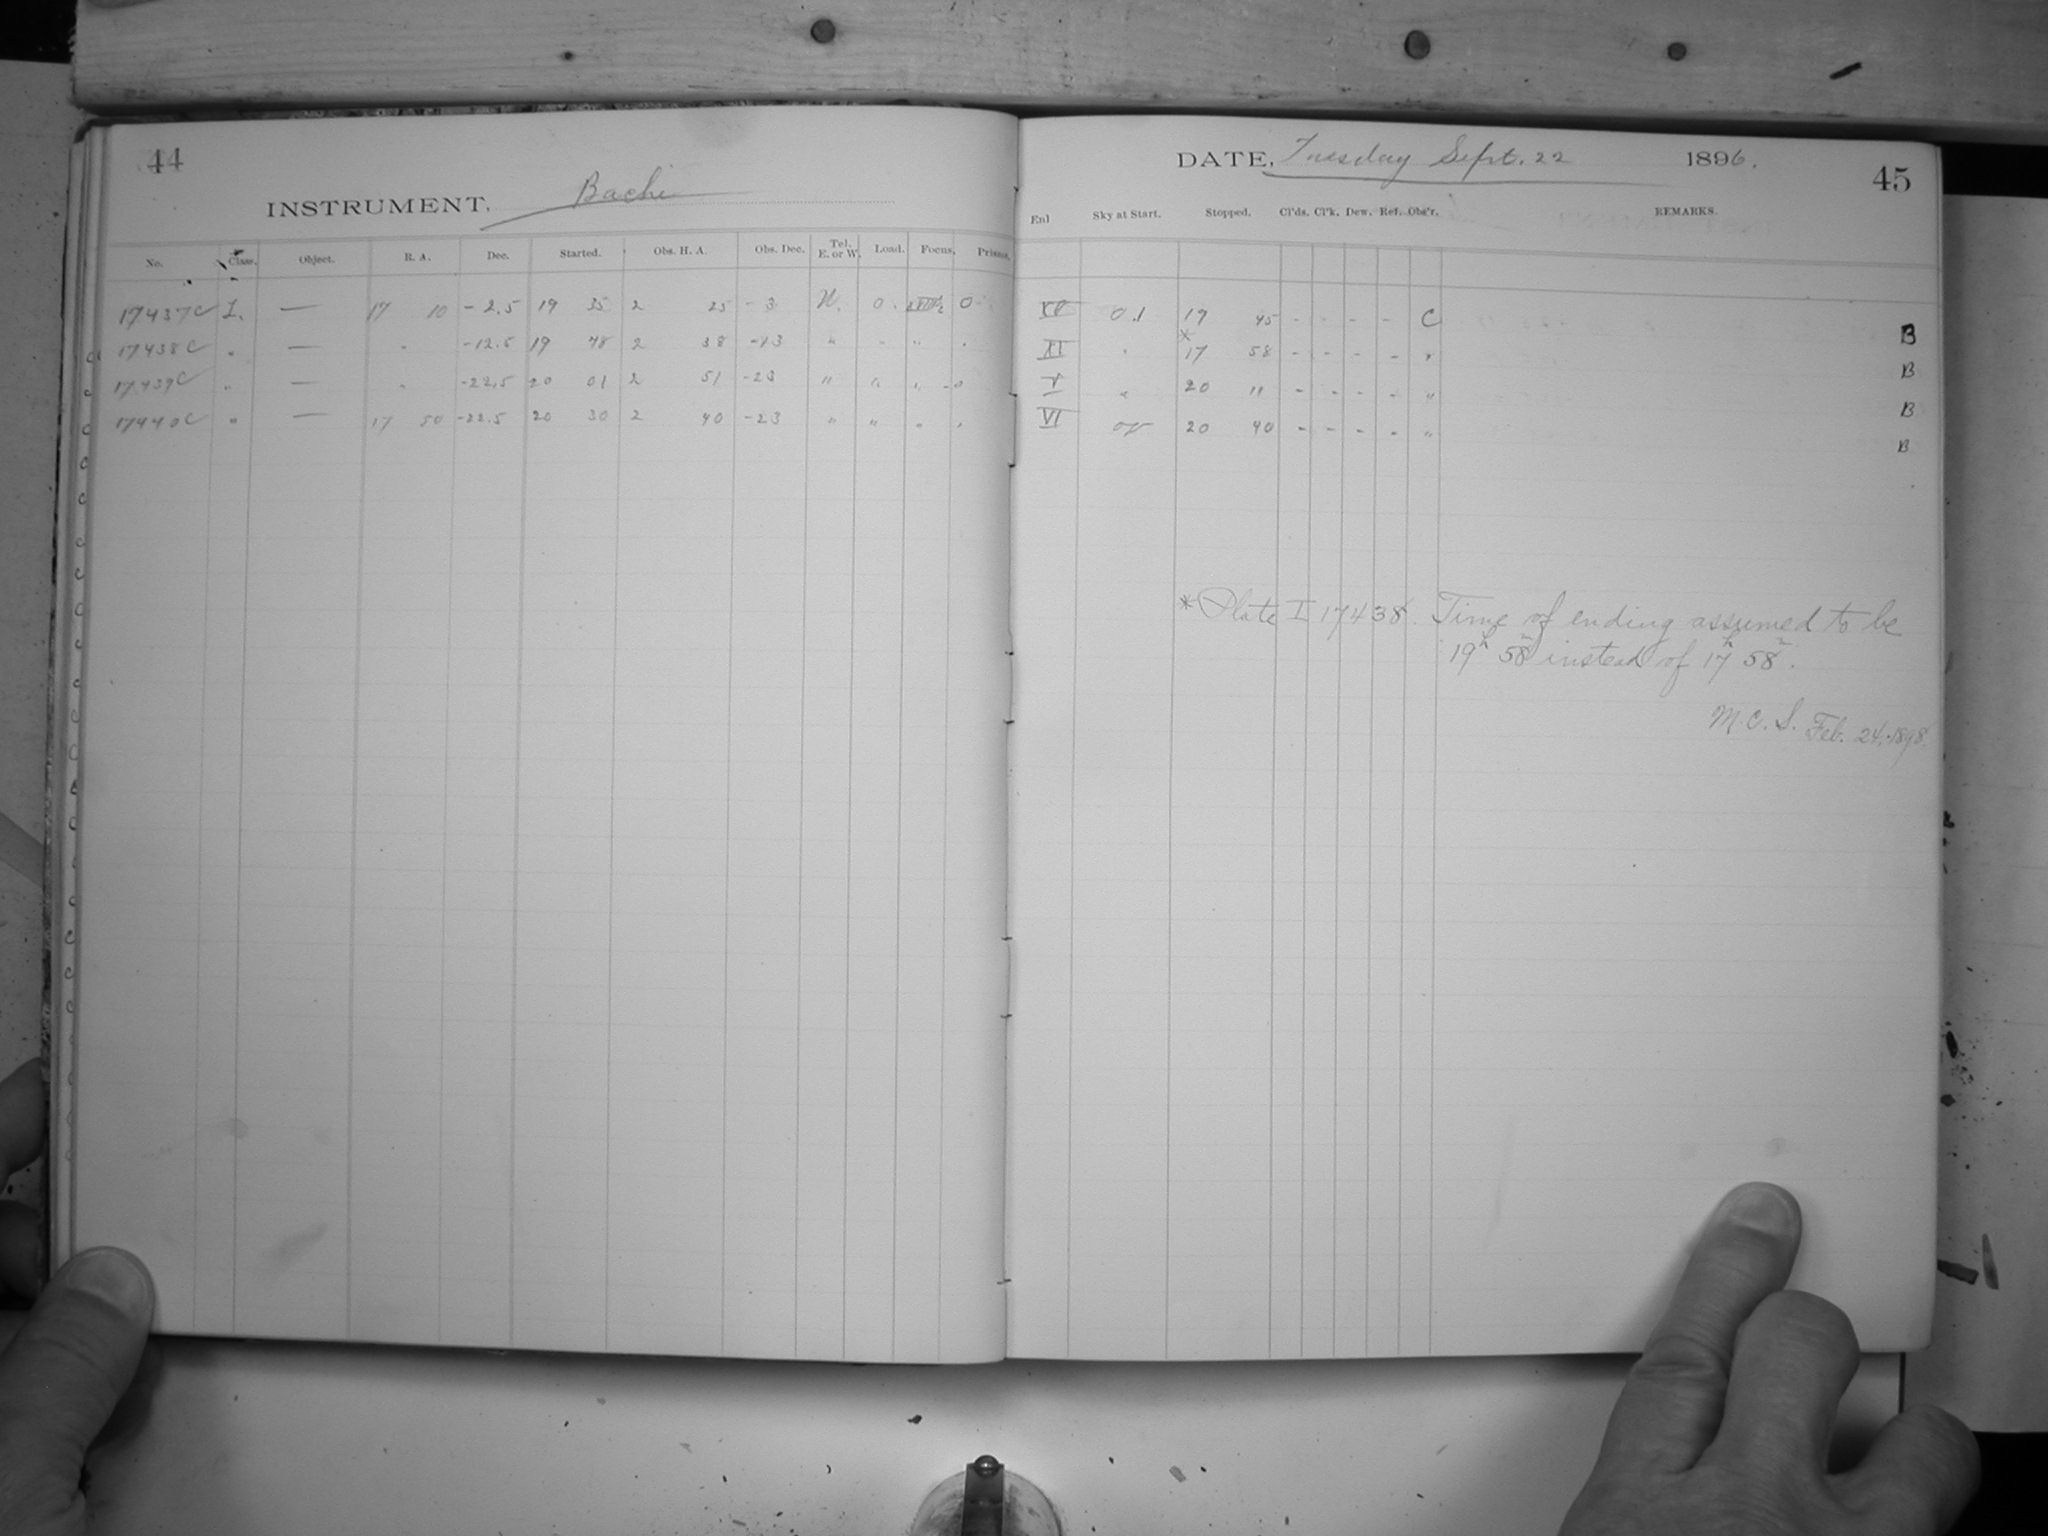 44
INSTRUMENT, Bache
No. Class. Object. R. A. Dec. Started. Obs. H. A. Obs. Dec. Tel. E. or W. Load. Focus, Prisms,
17437C I. — 17 10 -2.5 19 35 2 25 -3 W. 0. 0
17438C " — " -12.5 19 48 2 38 -13 " " " "
17439C " — " -22.5 20 01 2 51 -23 " " "
17440C " — 17 50 -22.5 20 30 2 40 -23 " " " "
DATE, Tuesday Sept. 22 1896. 45
Enl Sky at Start. Stopped. Cl'ds. Cl'k. Dew. Ref. Obs'r. REMARKS.
0.1 19 45 - - - - C B
XI " * 17 58 - - - - " B
V " 20 11 - - - - " B
VI 20 40 - - - - " B
* Plate I 17438. Time of ending assumed to be
19h 58m instead of 17h 58m.
M. C. S. Feb. 24, 1898.